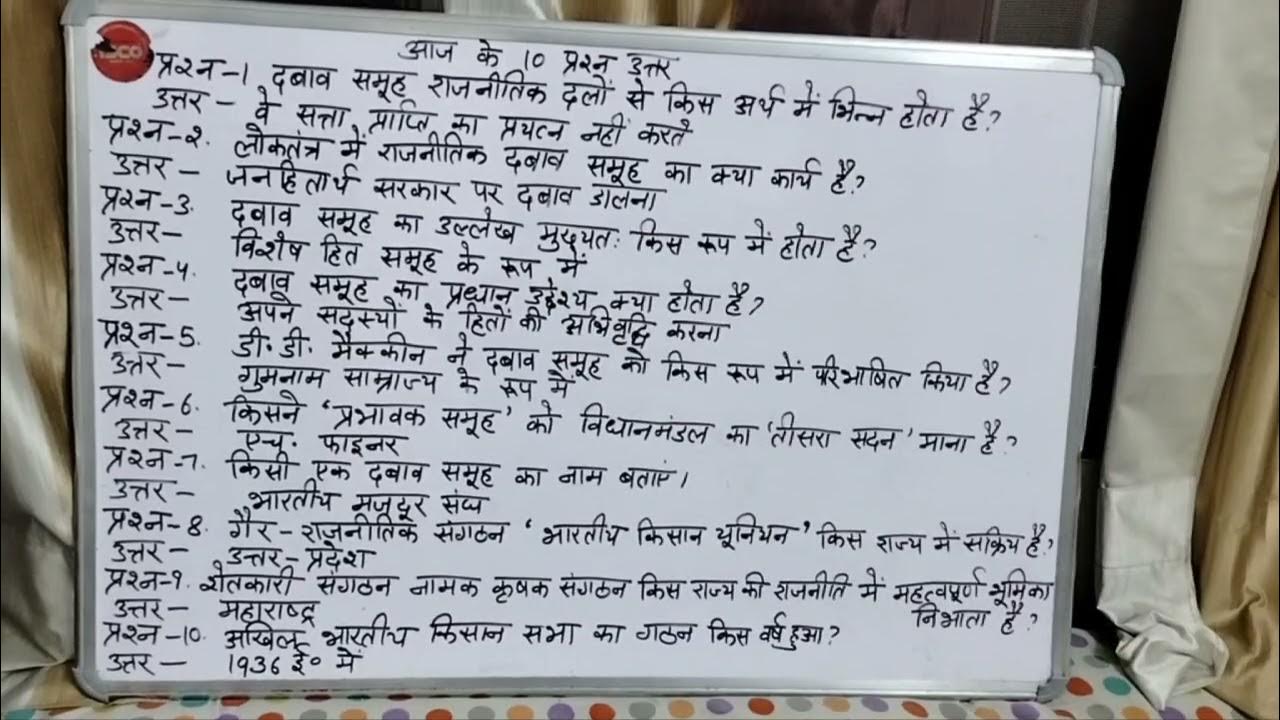 आज के 10 प्रश्न उत्तर
प्रश्न-1 दबाव समूह राजनीतिक दलों से किस अर्थ में भिन्न होता है?
उत्तर - वे सत्ता प्राप्ति का प्रयत्न नहीं करते
प्रश्न-2. लोकतंत्र में राजनीतिक दबाव समूह का क्या कार्य है?
उत्तर - जनहितार्थ सरकार पर दबाव डालना
प्रश्न-3. दबाव समूह का उल्लेख मुख्यतः किस रूप में होता है?
उत्तर- विशेष हित समूह के रूप में
प्रश्न-4. दबाव समूह का प्रधान उद्देश्य क्या होता है?
उत्तर- अपने सदस्यों के हितों की अभिवृद्धि करना
प्रश्न-5. डी. डी. मैक्कीन ने दबाव समूह को किस रूप में परिभाषित किया है?
उत्तर- गुमनाम साम्राज्य के रूप में
प्रश्न-6. किसने 'प्रभावक समूह' को विधानमंडल का 'तीसरा सदन' माना है?
उत्तर- एच. फाइनर
प्रश्न-7. किसी एक दबाव समूह का नाम बताएं।
उत्तर- भारतीय मजदूर संघ
प्रश्न-8. गैर-राजनीतिक संगठन 'भारतीय किसान यूनियन' किस राज्य में सक्रिय है?
उत्तर- उत्तर-प्रदेश
प्रश्न-9. शेतकारी संगठन नामक कृषक संगठन किस राज्य की राजनीति में महत्वपूर्ण भूमिका निभाता है?
उत्तर- महाराष्ट्र
प्रश्न-10. अखिल भारतीय किसान सभा का गठन किस वर्ष हुआ?
उत्तर- 1936 ई० में